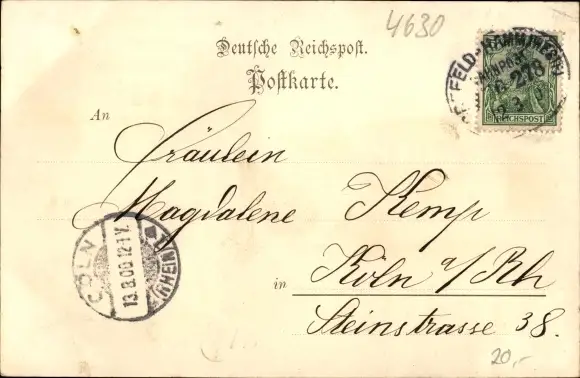 4630
Deutsche Reichspost.
Postkarte.
REICHSPOST
An
Fräulein
Magdalene Kemp
in Köln a/Rh
Steinstrasse 38.
CÖLN
(RHEIN)
12-1 V.
20,-